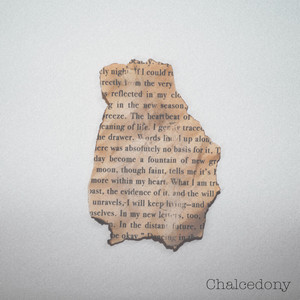 ly night. If I could r
rectly from the very
s reflected in my clo
g in the new season,
reeze. The heartbeat or
eaning of life. I gently traced
he drawer. Words lined up alone
ere was absolutely no basis for it, I
day become a fountain of new gr
moon, though faint, tells me it's
more within my heart. What I am tr
past, the evidence of it, and the will
unravels, I will keep living—and
selves. In my new letters, too,
In the distant future,
be okay."
Chalcedony